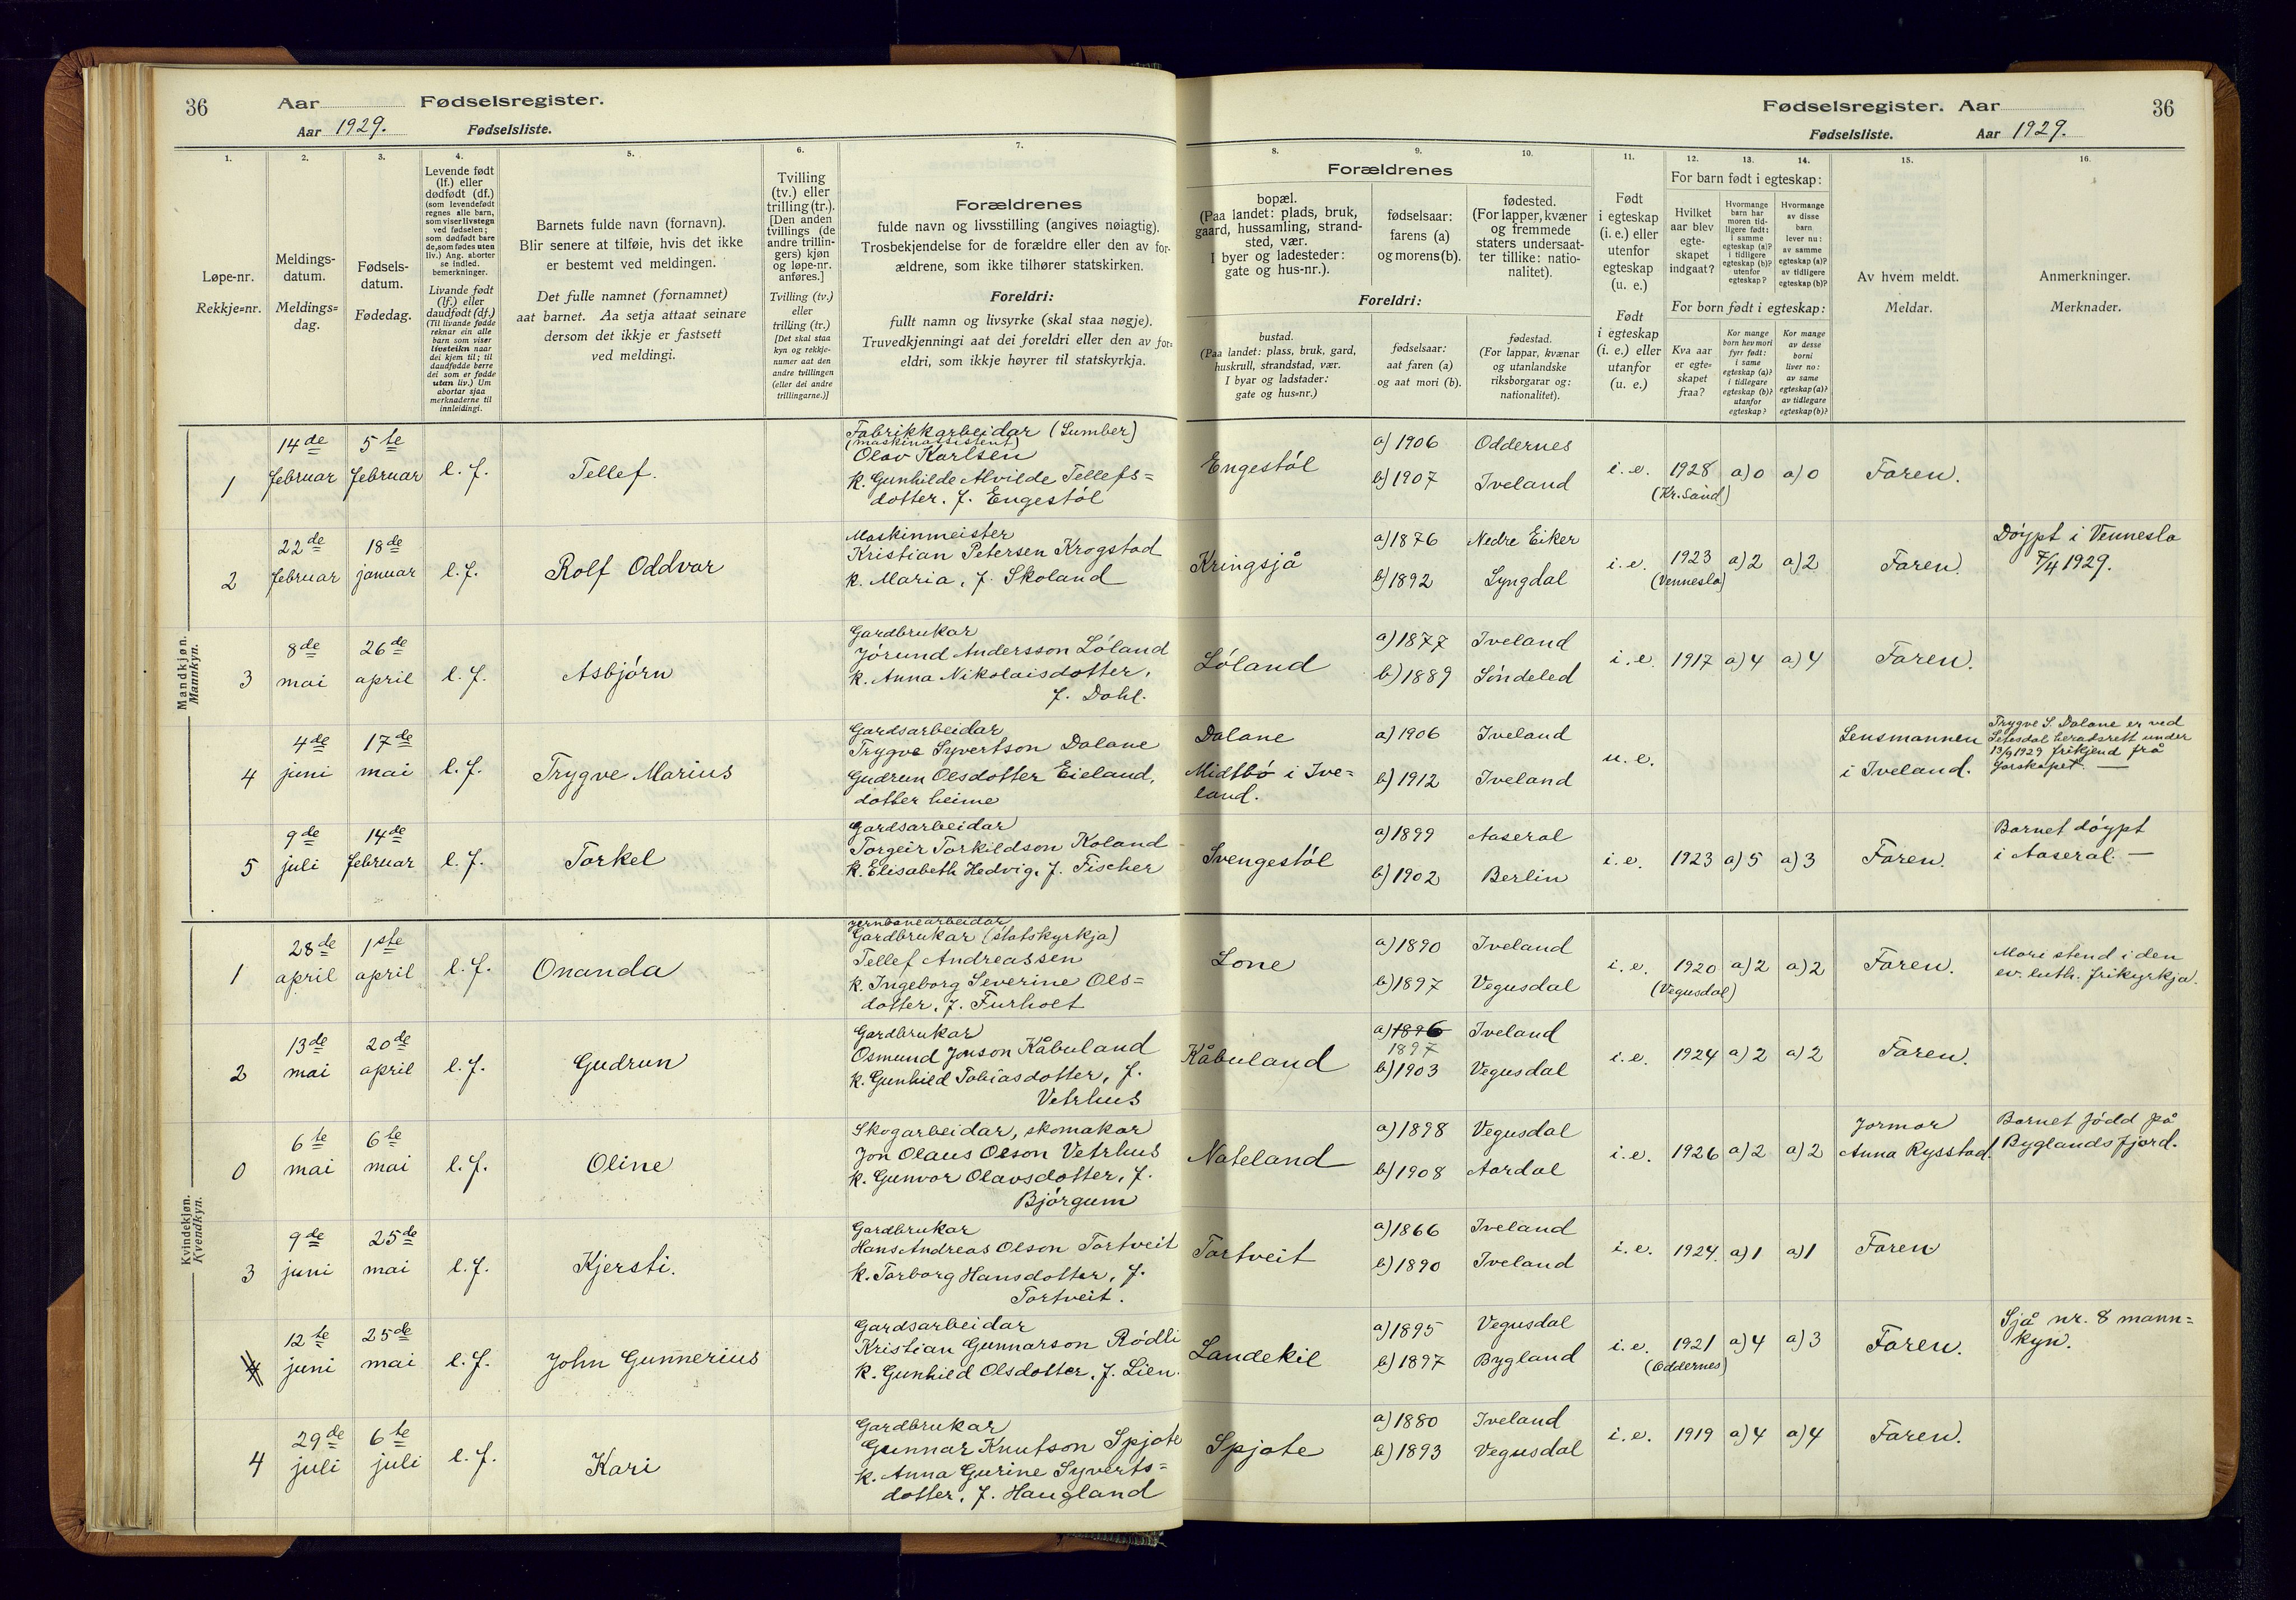 36
Aar
Fødselsregister.
Aar 1929.
Fødselsliste.
Fødselsregister. Aar
36
Fødselsliste.
Aar 1929.
1.
Løpe-nr.
Rekkje=nr.
2.
Meldings-
datum.
Meldings=
dag.
3.
Fødsels-
datum.
Fødedag.
4.
Levende født
(lf.) eller
dødfødt (df.)
(som levendefødt
regnes alle barn,
som viser livstegn
ved fødselen;
som dødfødt bare
de, som fødes uten
liv.) Ang. aborter
se indled.
bemerkninger.
Livande født
(lf.) eller
daudfødt (df.)
(Til livande fødde
reknar ein alle
barn som viser
livsteikn naar
dei kjem til; til
daudfødde berre
dei som er fødde
utan liv.) Um
abortar sjaa
merknaderne til
innleidingi.
5.
Barnets fulde navn (fornavn).
Blir senere at tilføie, hvis det ikke
er bestemt ved meldingen.
Det fulle namnet (fornamnet)
aat barnet. Aa setja attaat seinare
dersom det ikkje er fastsett
ved meldingi.
6.
Tvilling
(tv.) eller
trilling (tr.).
[Den anden
tvillings (de
andre trillin-
gers) kjøn
og løpe-nr.
anføres.]
Tvilling (tv.)
eller
trilling (tr.)
[Det skal staa
kyn og rekkje-
numer aat den
andre tvillingen
(eller dei andre
trillingarne.)]
7.
Forældrenes
fulde navn og livsstilling (angives nøiagtig).
Trosbekjendelse for de forældre eller den av for-
ældrene, som ikke tilhører statskirken.
Foreldri:
fullt namn og livsyrke (skal staa nøgje).
Truvedkjenningi aat dei foreldri eller den av for=
eldri, som ikkje høyrer til statskyrkja.
Forældrenes
8.
bopæl.
(Paa landet: plads, bruk,
gaard, hussamling, strand-
sted, vær.
I byer og ladesteder:
gate og hus-nr.).
9.
fødselsaar:
farens (a)
og morens (b).
10.
fødested.
(For lapper, kvæner
og fremmede
staters undersaat-
ter tillike: natio-
nalitet).
Foreldri:
bustad.
(Paa landet: plass, bruk, gard,
huskrull, strandstad, vær.
I byar og ladstader:
gate og hus=nr.)
fødselsaar:
aat faren (a)
og aat mori (b).
fødestad.
(For lappar, kvænar
og utanlandske
riksborgarar og:
nationalitet).
11.
Født
i egteskap
(i. e.) eller
utenfor
egteskap
(u. e.)
Født
i egteskap
(i. e.) eller
utanfor
(u. e.)
12.
13.
14.
For barn født i egteskap:
Hvilket
aar blev
egte-
skapet
indgaat?
Hvormange
barn har
moren tid-
ligere født:
i samme
egteskap (a)?
i tidligere
egteskap (b)?
utenfor
egteskap?
Hvormange
av disse
barn
lever nu:
av samme
egteskap (a)?
av tidligere
egteskap (b)?
For born født i egteskap:
Kva aar
er egte=
skapet
fraa?
Kor mange
born hev mori
fyrr født:
i same
egteskap (a)?
i tidlegare
egteskap (b)?
utanfor
egteskap?
Kor mange
av desse
borni
liver no:
av same
egteskap (a)?
av tidlegare
egteskap (b)?
15.
Av hvem meldt.
Meldar.
16.
Anmerkninger.
Merknader.
Mandkjøn.
Mannkyn.
1
14de
februar
5te
februar
l. f.
Tellef.
Fabrikkarbeidar (Lumber)
(maskinassistent)
Olav Karlsen
k. Gunhilde Alvilde Tellefs=
dotter. f. Engestøl
Engestøl
a) 1906
b) 1907
Oddernes
Iveland
i. e.
1928
(Kr.sand)
a) 0
a) 0
Faren.
2
22de
februar
18de
januar
l. f.
Rolf Oddvar
Maskinmeister
Kristian Petersen Krogstad
k. Maria, f. Skoland
Kringsjå
a) 1876
b) 1892
Nedre Eiker
Lyngdal
i. e.
1923
(Vennesla)
a) 2
a) 2
Faren.
Døypt i Vennesla
7/4 1929.
3
8de
mai
26de
april
l. f.
Asbjørn
Gardbrukar
Jørund Andersson Løland
k. Anna Nikolaisdotter,
f. Dahl.
Løland
a) 1877
b) 1889
Iveland
Søndeled
i. e.
1917
a) 4
a) 4
Faren.
4
4de
juni
17de
mai
l. f.
Trygve Marius
Gardsarbeidar
Trygve Syvertson Dalane
Gudrun Olsdotter Eieland,
dotter heime
Dalane
Midtbø i Ive=
land.
a) 1906
b) 1912
Iveland
Iveland
u. e.
Lensmannen
i Iveland.
Trygve S. Dalane er ved
Setesdal heradsrett under
13/9 1929 frikjend frå
farskapet. —
5
9de
juli
14de
februar
l. f.
Torkel
Gardsarbeidar
Torgeir Torkildson Koland
k. Elisabeth Hedvig, f. Fischer
Svengestøl
a) 1899
b) 1902
Aaseral
Berlin
i. e.
1923
a) 5
a) 3
Faren.
Barnet døypt
i Aaseral. —
Kvindekjøn.
Kvendkyn.
1
28de
april
1ste
april
l. f.
Onanda
jernbanearbeidar
Gardbrukar (statskyrkja)
Tellef Andreassen
k. Ingeborg Severine Ols=
dotter, f. Furholt
Lone
a) 1890
b) 1897
Iveland
Vegusdal
i. e.
1920
(Vegusdal)
a) 2
a) 2
Faren.
Mori stend i den
ev. luth. frikyrkja.
2
13de
mai
20de
april
l. f.
Gudrun
Gardbrukar
Osmund Jonson Kåbuland
k. Gunhild Tobiasdotter, f.
Vetrhus
Kåbuland
a) 1896
1897
b) 1903
Iveland
Vegusdal
i. e.
1924
a) 2
a) 2
Faren.
0
6te
mai
6te
mai
l. f.
Oline
Skogarbeidar, skomakar
Jon Olaus Olson Vetrhus
k. Gunvor Olavsdotter, f.
Bjørgum
Nateland
a) 1898
b) 1908
Vegusdal
Aardal
i. e.
1926
a) 2
a) 2
Jormor
Anna Rysstad.
Barnet fødd på
Byglandsfjord.
3
9de
juni
25de
mai
l. f.
Kjersti.
Gardbrukar
Hans Andreas Olson Tortveit
k. Torborg Hansdotter, f.
Tortveit.
Tortveit
a) 1866
b) 1890
Iveland
Iveland
i. e.
1924.
a) 1
a) 1
Faren
4
12te
juni
25de
mai
l. f.
John Gunnerius
Gardsarbeidar
Kristian Gunnarson Rødli
k. Gunhild Olsdotter, f. Lien.
Landekil
a) 1895
b) 1897
Vegusdal
Bygland
i. e.
1921
(Oddernes)
a) 4
a) 3
Faren.
Sjå nr. 8 mann=
kyn.
4
29de
juli
6te
juli
l. f.
Kari
Gardbrukar
Gunnar Knutson Spjote
k. Anna Gurine Syverts=
dotter, f. Haugland
Spjote
a) 1880
b) 1893
Iveland
Vegusdal
i. e.
1919
a) 4
a) 4
Faren.